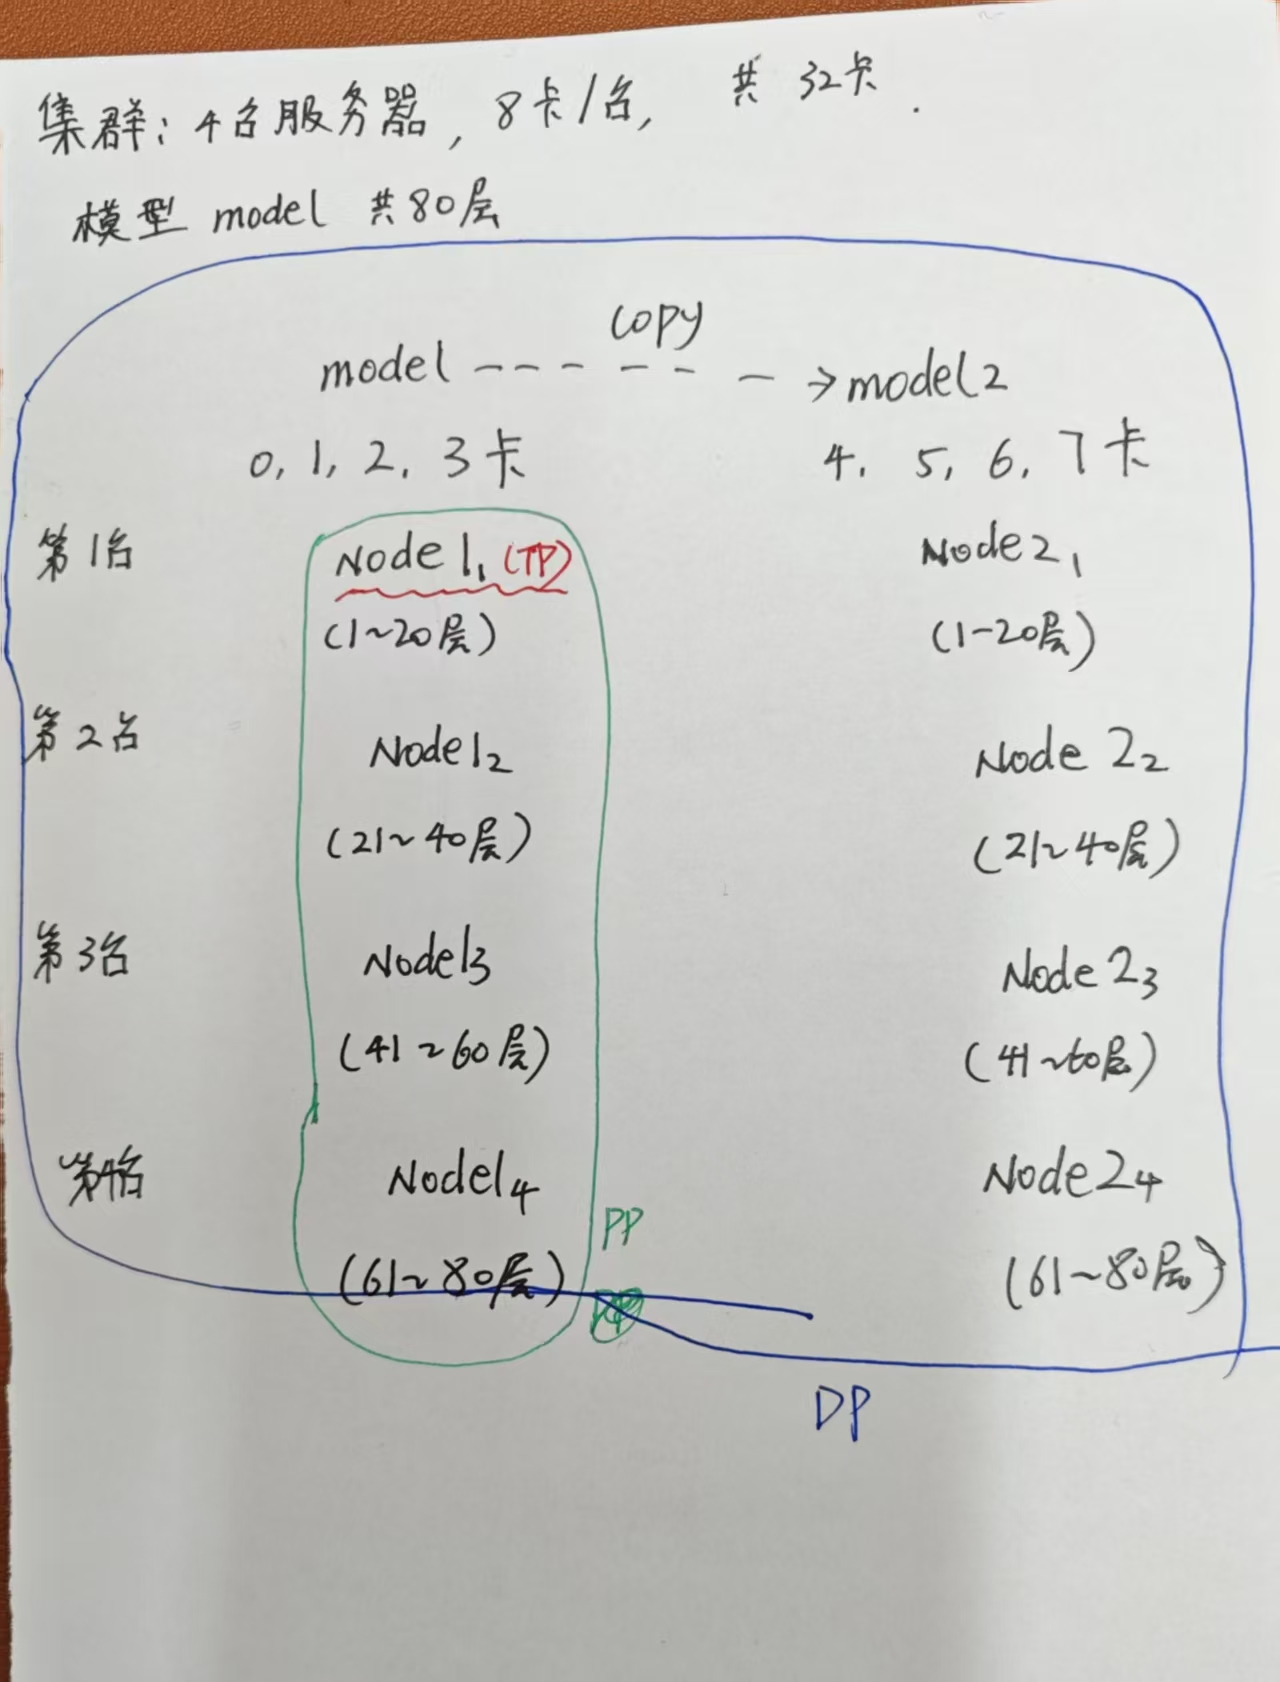 集群: 4台服务器, 8卡/台, 共 32卡.
模型 model 共80层
copy
model - - - - - - → model2
0, 1, 2, 3卡 4, 5, 6, 7卡
第1台 Node1₁ (TP) Node2₁
(1~20层) (1-20层)
第2台 Node1₂ Node2₂
(21~40层) (21~40层)
第3台 Node1₃ Node2₃
(41~60层) (41~60层)
第4台 Node1₄ Node2₄
PP
(61~80层) (61~80层)
DP